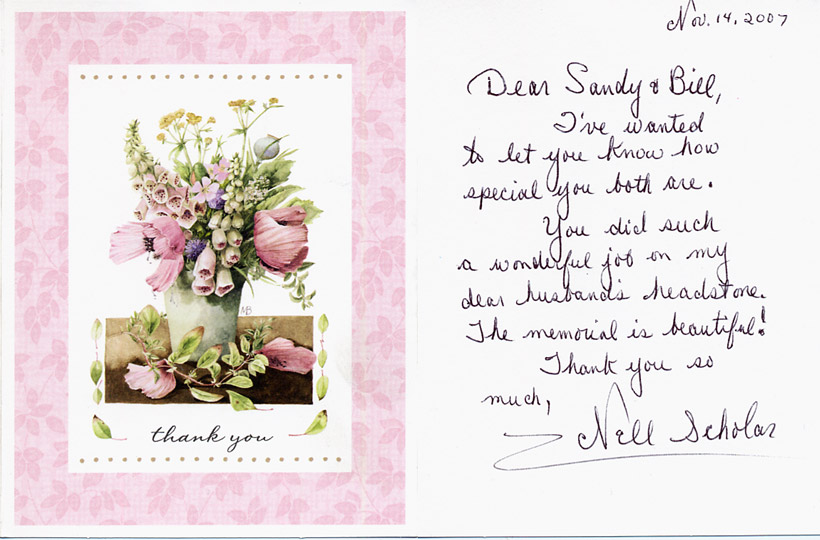 MB
thank you
Nov. 14, 2007
Dear Sandy & Bill,
I've wanted
to let you know how
special you both are.
You did such
a wonderful job on my
dear husband's headstone.
The memorial is beautiful!
Thank you so
much,
Nell Scholar